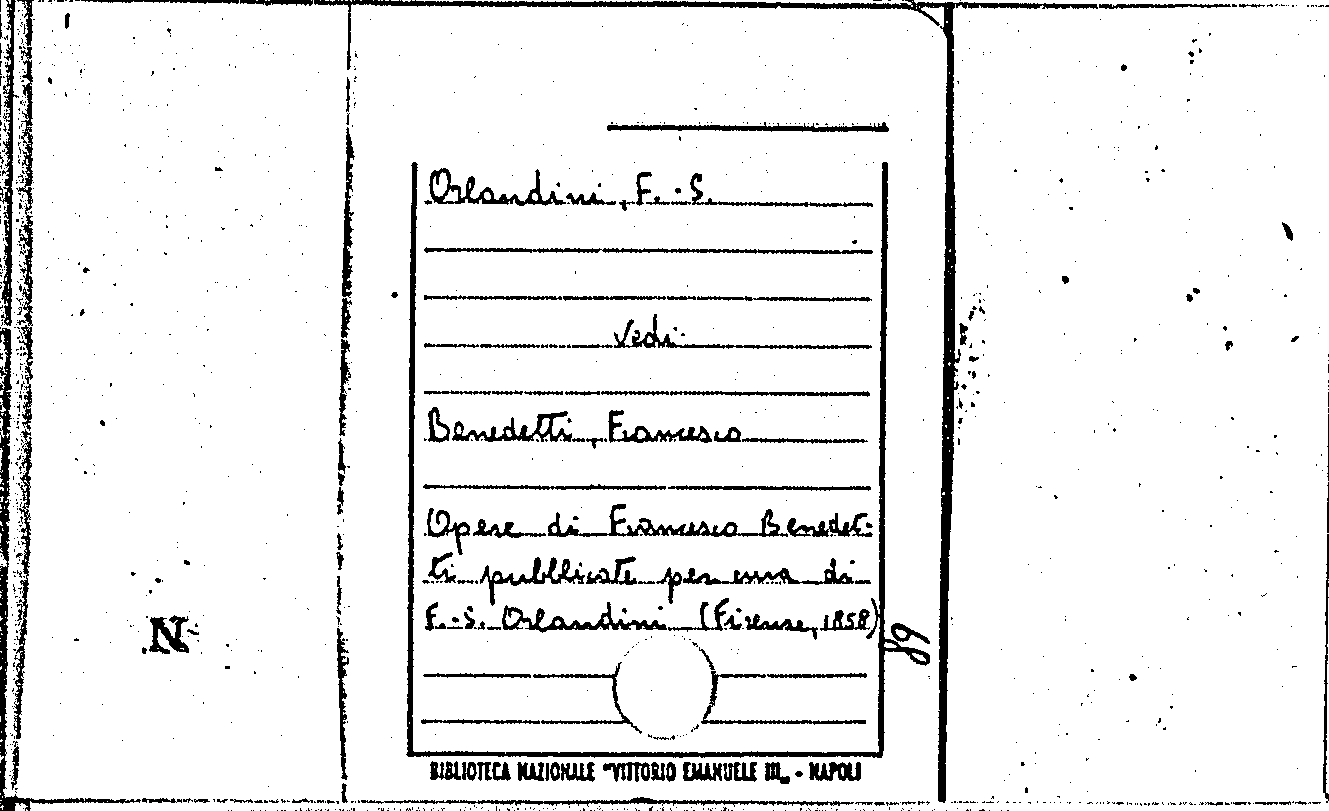 Orlandini, F.-S.
Vedi
Benedetti, Francesco
Opere di Francesco Benedet-
ti pubblicate per cura di
F.-S. Orlandini (Firenze, 1858)
N
89
BIBLIOTECA NAZIONALE "VITTORIO EMANUELE III„ - NAPOLI